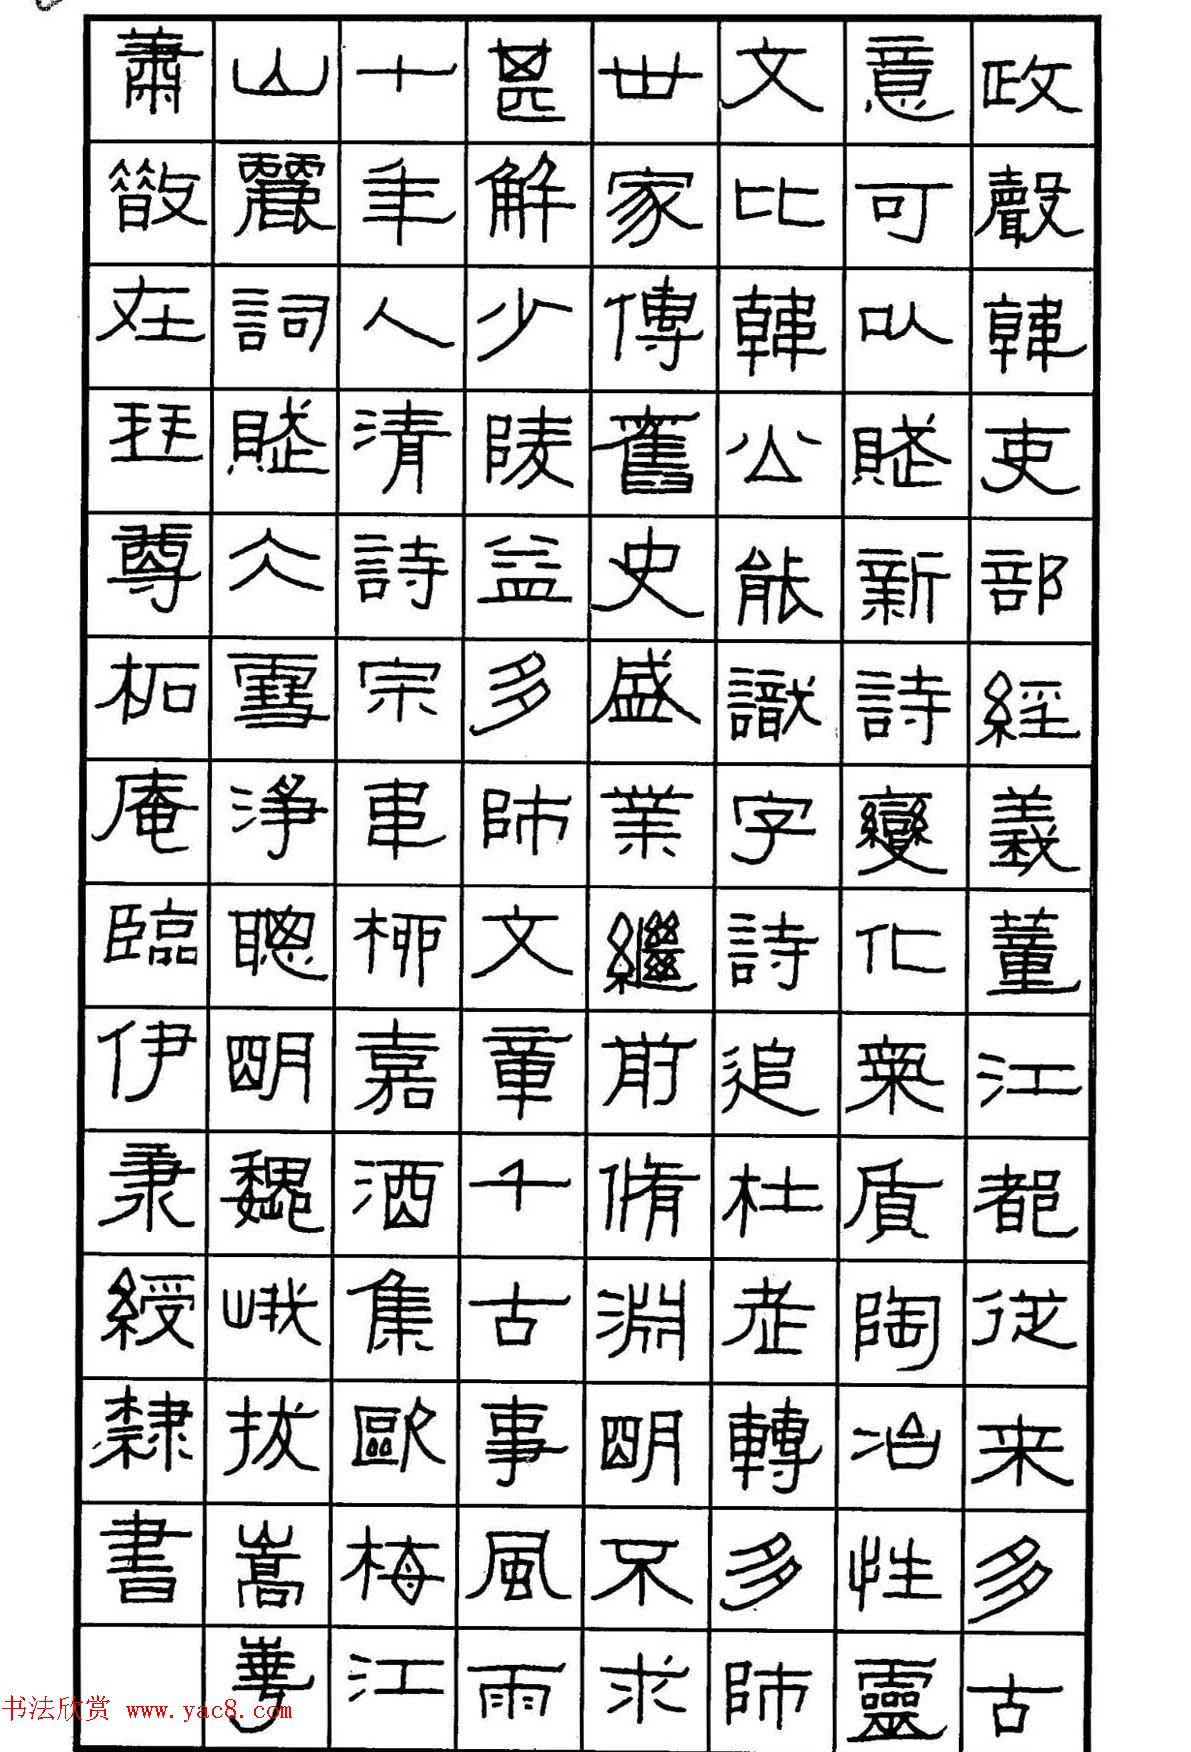 政聲韓吏部經義董江都從来多古
意可以賦新詩變化氣質陶冶性靈
文比韓公能識字詩追杜老轉多師
世家傳舊史盛業繼前脩淵明不求
甚解少陵益多師文章千古事風雨
十年人清詩宗韋柳嘉酒集歐梅江
山麗詞賦仌雪淨聰明巍峨拔嵩華
蕭散在琴尊柘庵臨伊秉綬隸書
书法欣赏 www.yac8.com